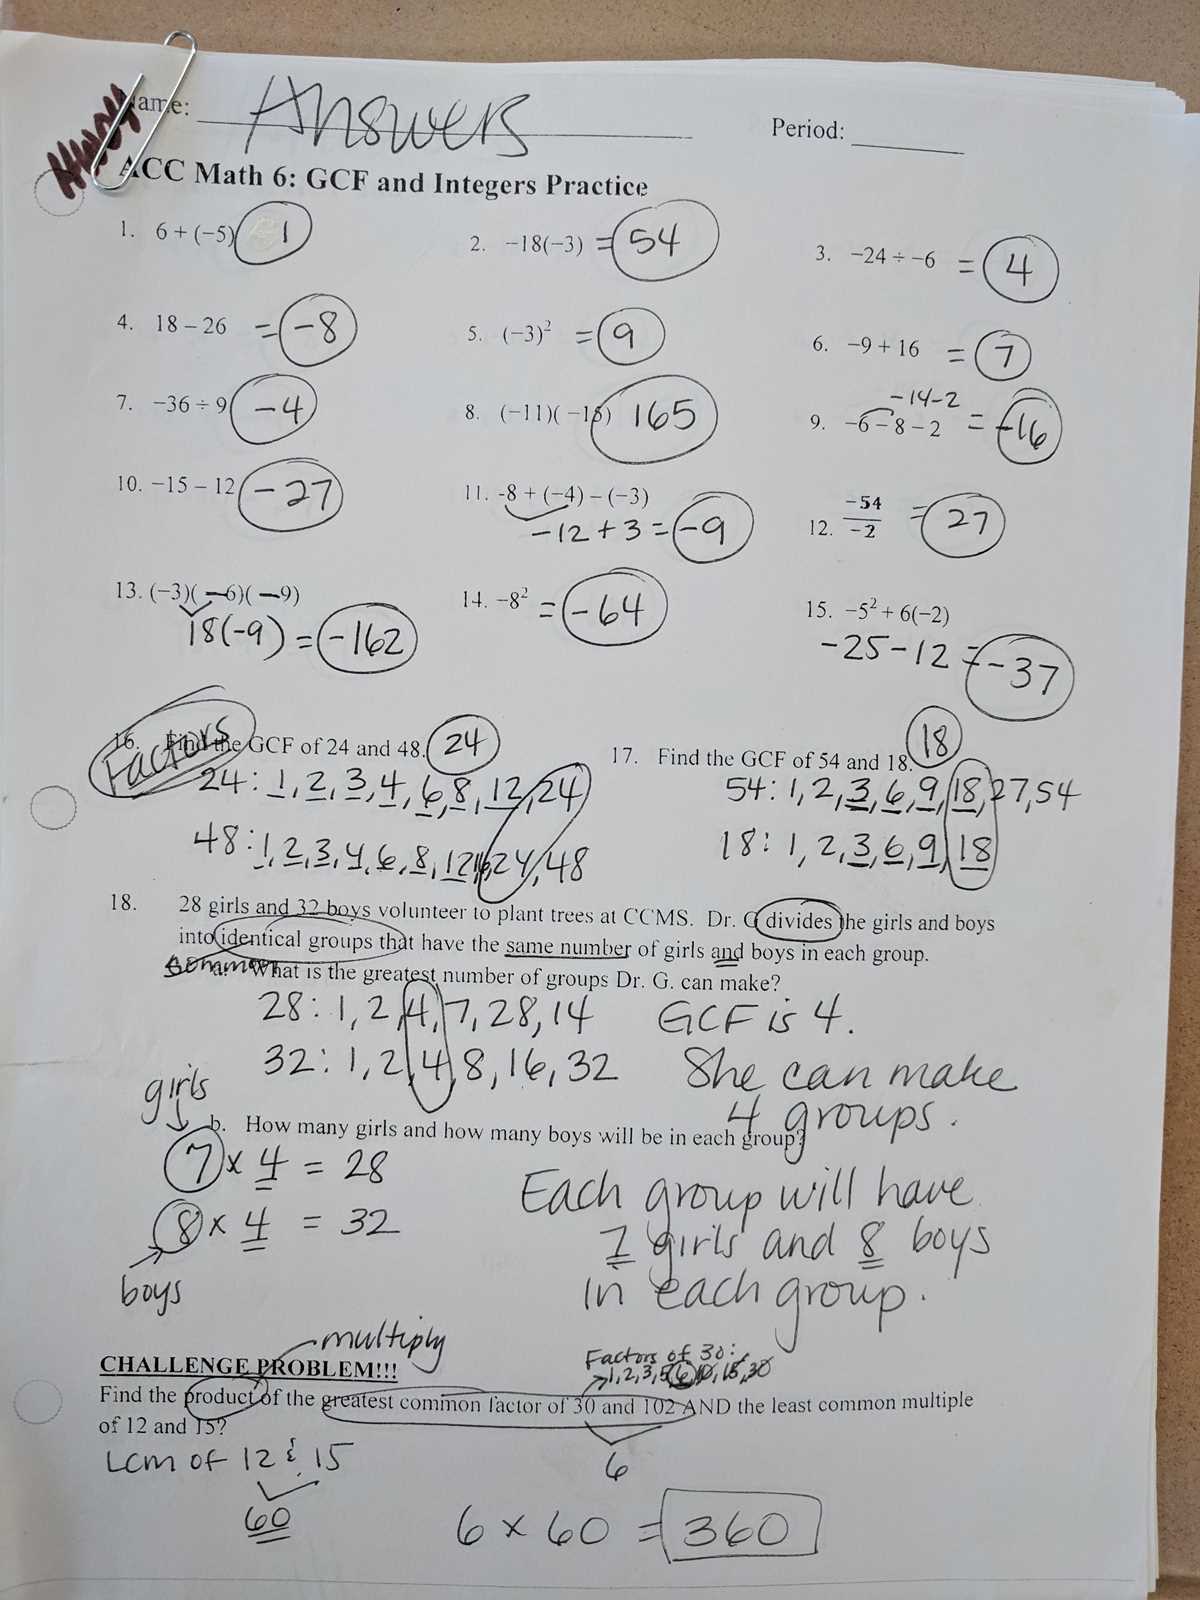 Name: Answers Period:
ACC Math 6: GCF and Integers Practice
1. 6 + (−5) 1 2. −18(−3) = 54 3. −24 ÷ −6 = 4
4. 18 − 26 = −8 5. (−3)² = 9 6. −9 + 16 = 7
−14−2
7. −36 ÷ 9 −4 8. (−11)( −15) 165 9. −6 − 8 − 2 = −16
10. −15 − 12 −27 11. -8 + (−4) − (−3) 12. −54/−2 = 27
−12 + 3 = −9
13. (−3)( −6)( −9) 14. −8² = −64 15. −5² + 6(−2)
18(−9) = −162 −25 − 12 = −37
Factors
16. Find the GCF of 24 and 48. 24 17. Find the GCF of 54 and 18. 18
24: 1, 2, 3, 4, 6, 8, 12, 24 54: 1, 2, 3, 6, 9, 18, 27, 54
48: 1, 2, 3, 4, 6, 8, 12, 16, 24, 48 18: 1, 2, 3, 6, 9, 18
18. 28 girls and 32 boys volunteer to plant trees at CCMS. Dr. G divides the girls and boys
into identical groups that have the same number of girls and boys in each group.
common a. What is the greatest number of groups Dr. G. can make?
28: 1, 2, 4, 7, 28, 14 GCF is 4.
32: 1, 2, 4, 8, 16, 32 She can make
girls 4 groups.
b. How many girls and how many boys will be in each group?
7 × 4 = 28 Each group will have
8 × 4 = 32 7 girls and 8 boys
boys in each group.
multiply
CHALLENGE PROBLEM!!! Factors of 30:
1, 2, 3, 5, 6, 10, 15, 30
Find the product of the greatest common factor of 30 and 102 AND the least common multiple
of 12 and 15?
LCM of 12 & 15 6
60 6 × 60 = 360